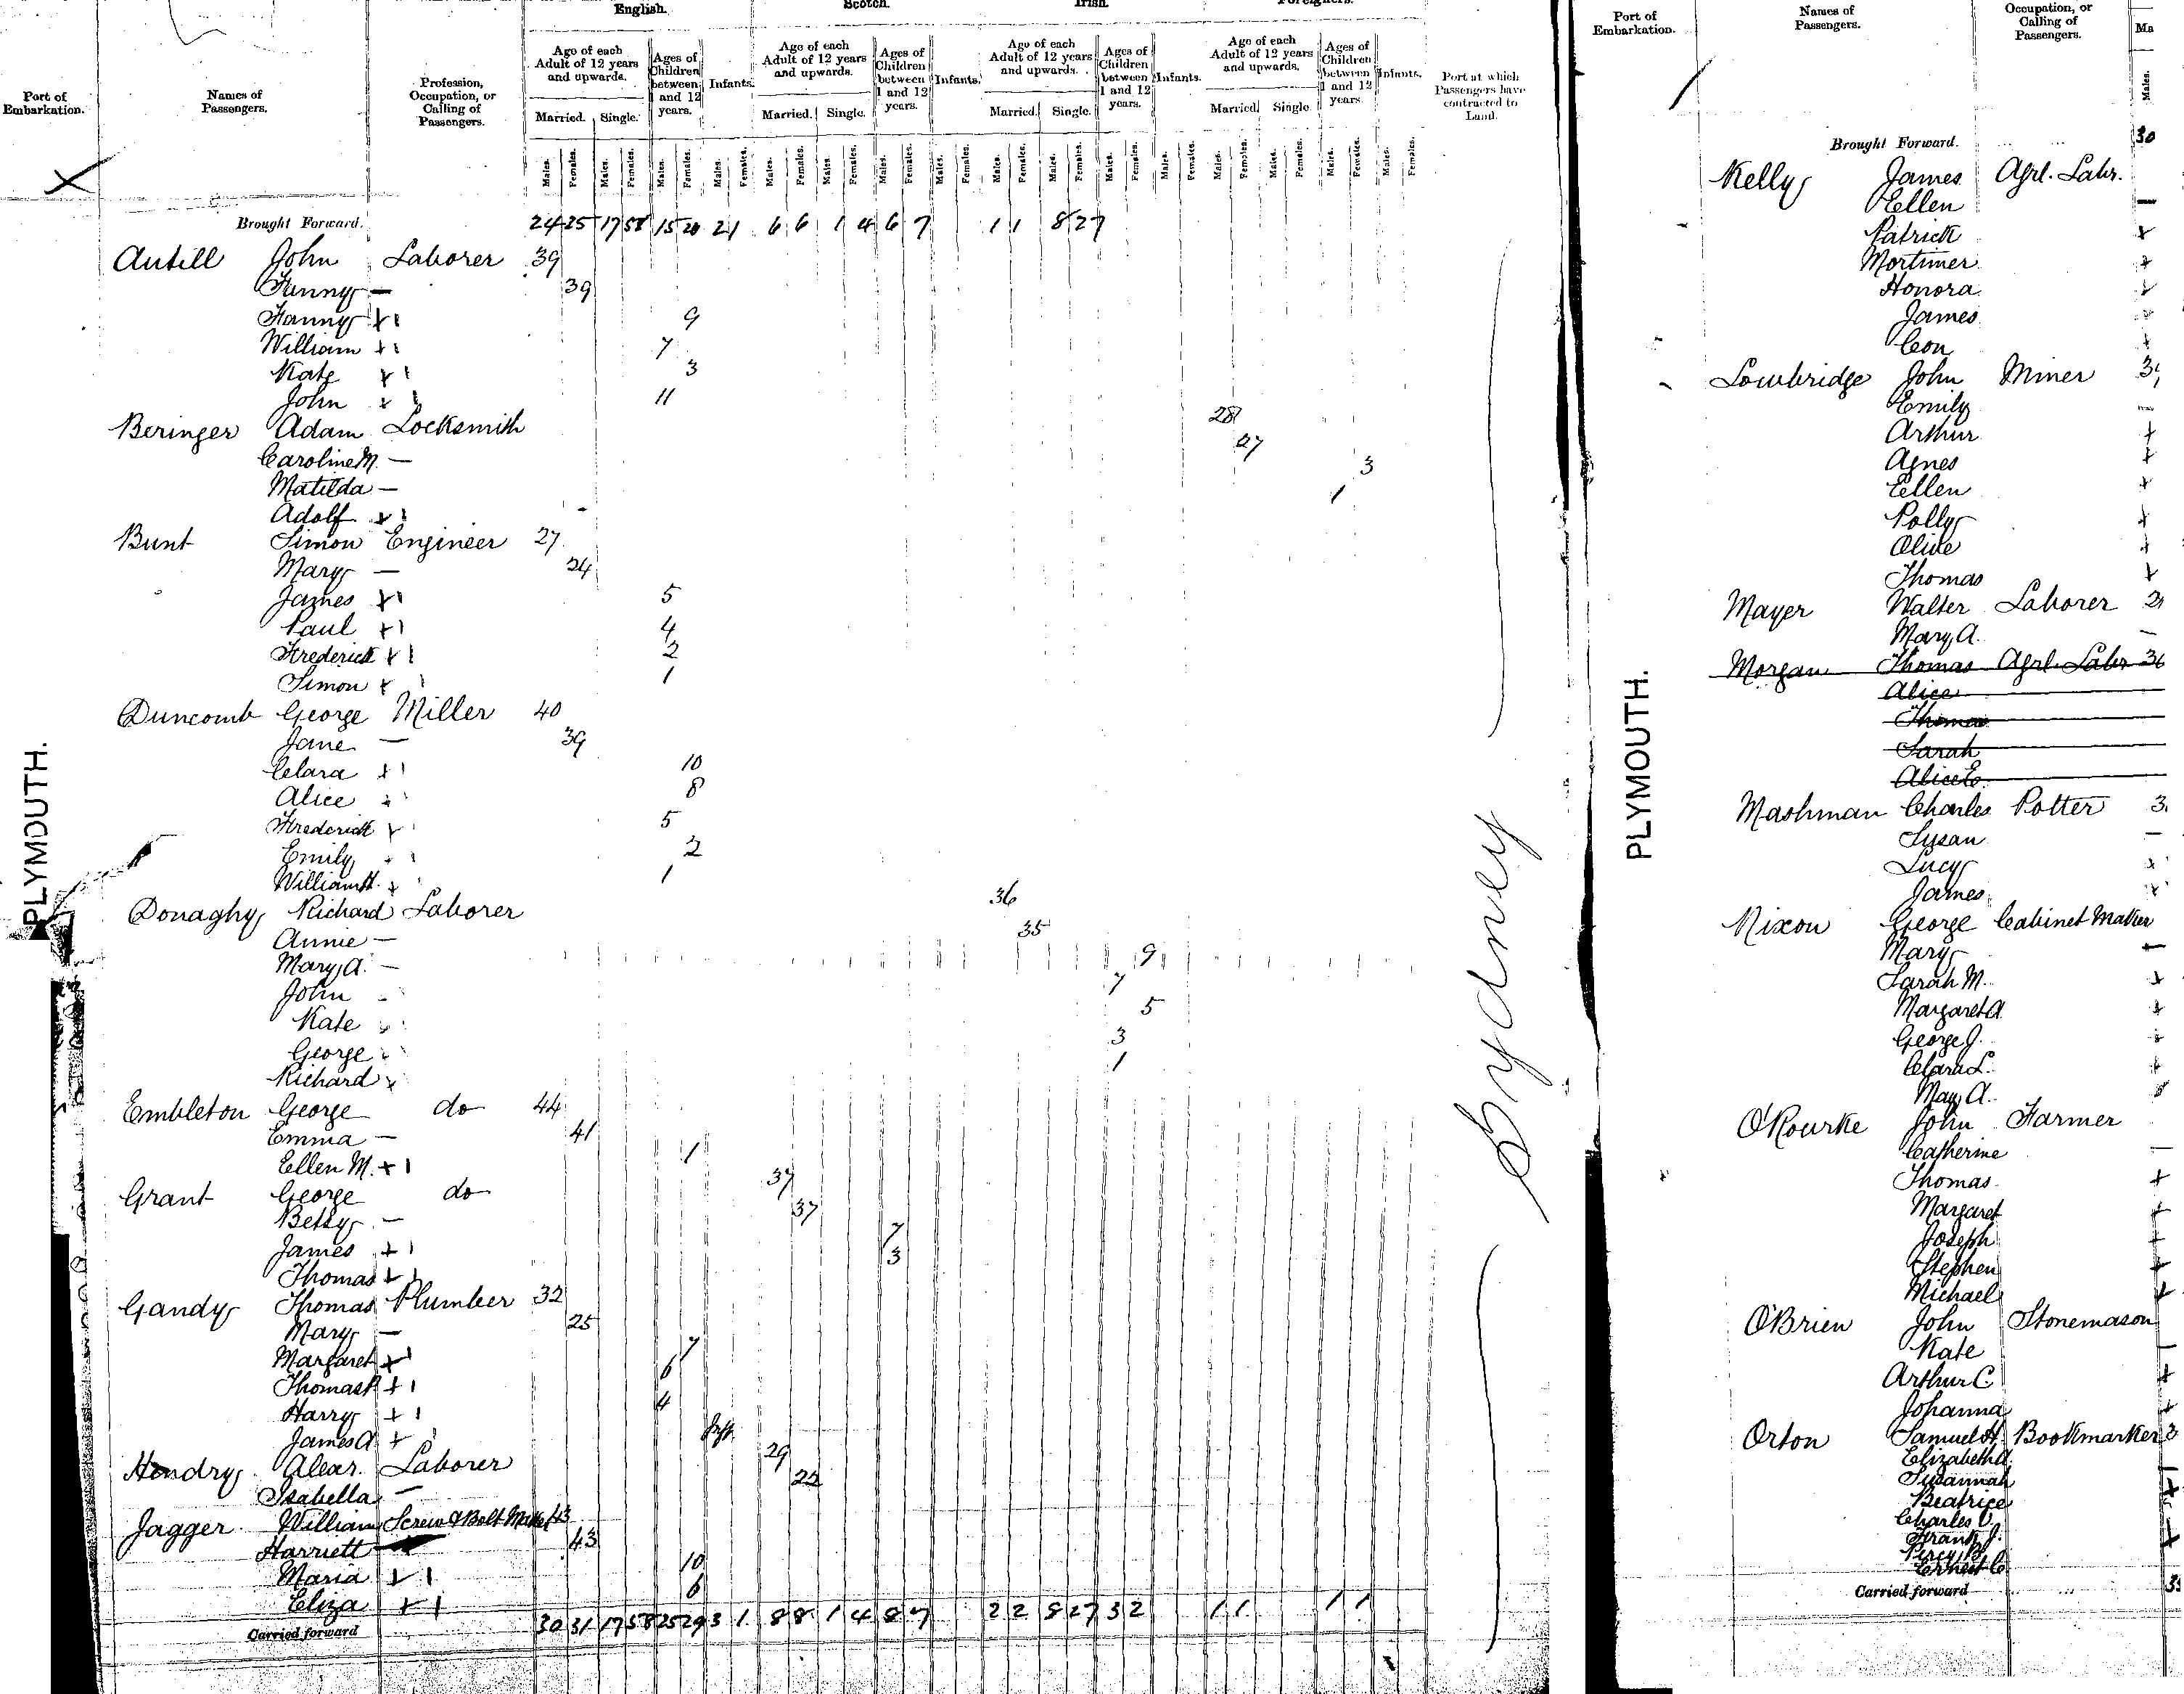 English. Scotch. Irish. Foreigners.
Port of Embarkation. Names of Passengers. Profession, Occupation, or Calling of Passengers.
Age of each Adult of 12 years and upwards. Ages of Children between 1 and 12 years. Infants. Age of each Adult of 12 years and upwards. Ages of Children between 1 and 12 years. Infants. Age of each Adult of 12 years and upwards. Ages of Children between 1 and 12 years. Infants. Age of each Adult of 12 years and upwards. Ages of Children between 1 and 12 years. Infants. Port at which Passengers have contracted to Land.
Married. Single. Married. Single. Married. Single. Married. Single.
Males. Females. Males. Females. Males. Females. Males. Females. Males. Females. Males. Females. Males. Females. Males. Females. Males. Females. Males. Females. Males. Females. Males. Females. Males. Females. Males. Females. Males. Females. Males. Females.
Brought Forward. 24 25 17 58 15 20 2 1 6 6 1 4 6 7 1 1 8 27
Antill John Laborer 39
Fanny — 39
Fanny 9
William 7
Kate 3
John 11
Beringer Adam Locksmith 28
Caroline M. — 27
Matilda — 3
Adolf 1
Bunt Simon Engineer 27
Mary — 24
James 5
Paul 4
Frederick 2
Simon 1
Duncomb George Miller 40
Jane — 39
Clara 10
Alice 8
Frederick 5
Emily 2
William H. 1
Donaghy Richard Laborer 36
Annie — 35
Mary A. — 9
John 7
Kate 5
George 3
Richard 1
Embleton George do 44
Emma — 41
Ellen M. 1
Grant George do 37
Betsy — 37
James 7
Thomas 3
Gandy Thomas Plumber 32
Mary — 25
Margaret 7
Thomas P. 6
Harry 4
James A. Inft
Hendry Alexr. Laborer 29
Isabella — 22
Jagger William Screw & Bolt Maker 43
Harriett 43
Maria 10
Eliza 6
Carried forward 30 31 17 58 25 29 3 1 8 8 1 4 8 7 2 2 8 27 3 2 1 1 1 1
PLYMOUTH.
Sydney
Port of Embarkation. Names of Passengers. Occupation, or Calling of Passengers. Ma
Males.
Brought Forward. 30
Kelly James Agrl. Labr.
Ellen —
Patrick
Mortimer
Honora
James
Con
Lowbridge John Miner
Emily
Arthur
Agnes
Ellen
Polly
Olive
Thomas
Mayer Walter Laborer
Mary A. —
Morgan Thomas Agrl. Labr 36
Alice
Thomas
Sarah
Alice E.
Mashman Charles Potter
Susan
Lucy
James
Nixon George Cabinet Maker
Mary —
Sarah M.
Margaret A.
George J.
Clara L.
May A.
O'Rourke John Farmer
Catherine —
Thomas
Margaret
Joseph
Stephen
Michael
O'Brien John Stonemason
Kate —
Arthur C.
Johanna
Orton Samuel H. Bookmarker
Elizabeth A.
Susannah
Beatrice
Charles V.
Frank J.
Percy B.
Ernest C.
Carried forward
PLYMOUTH.